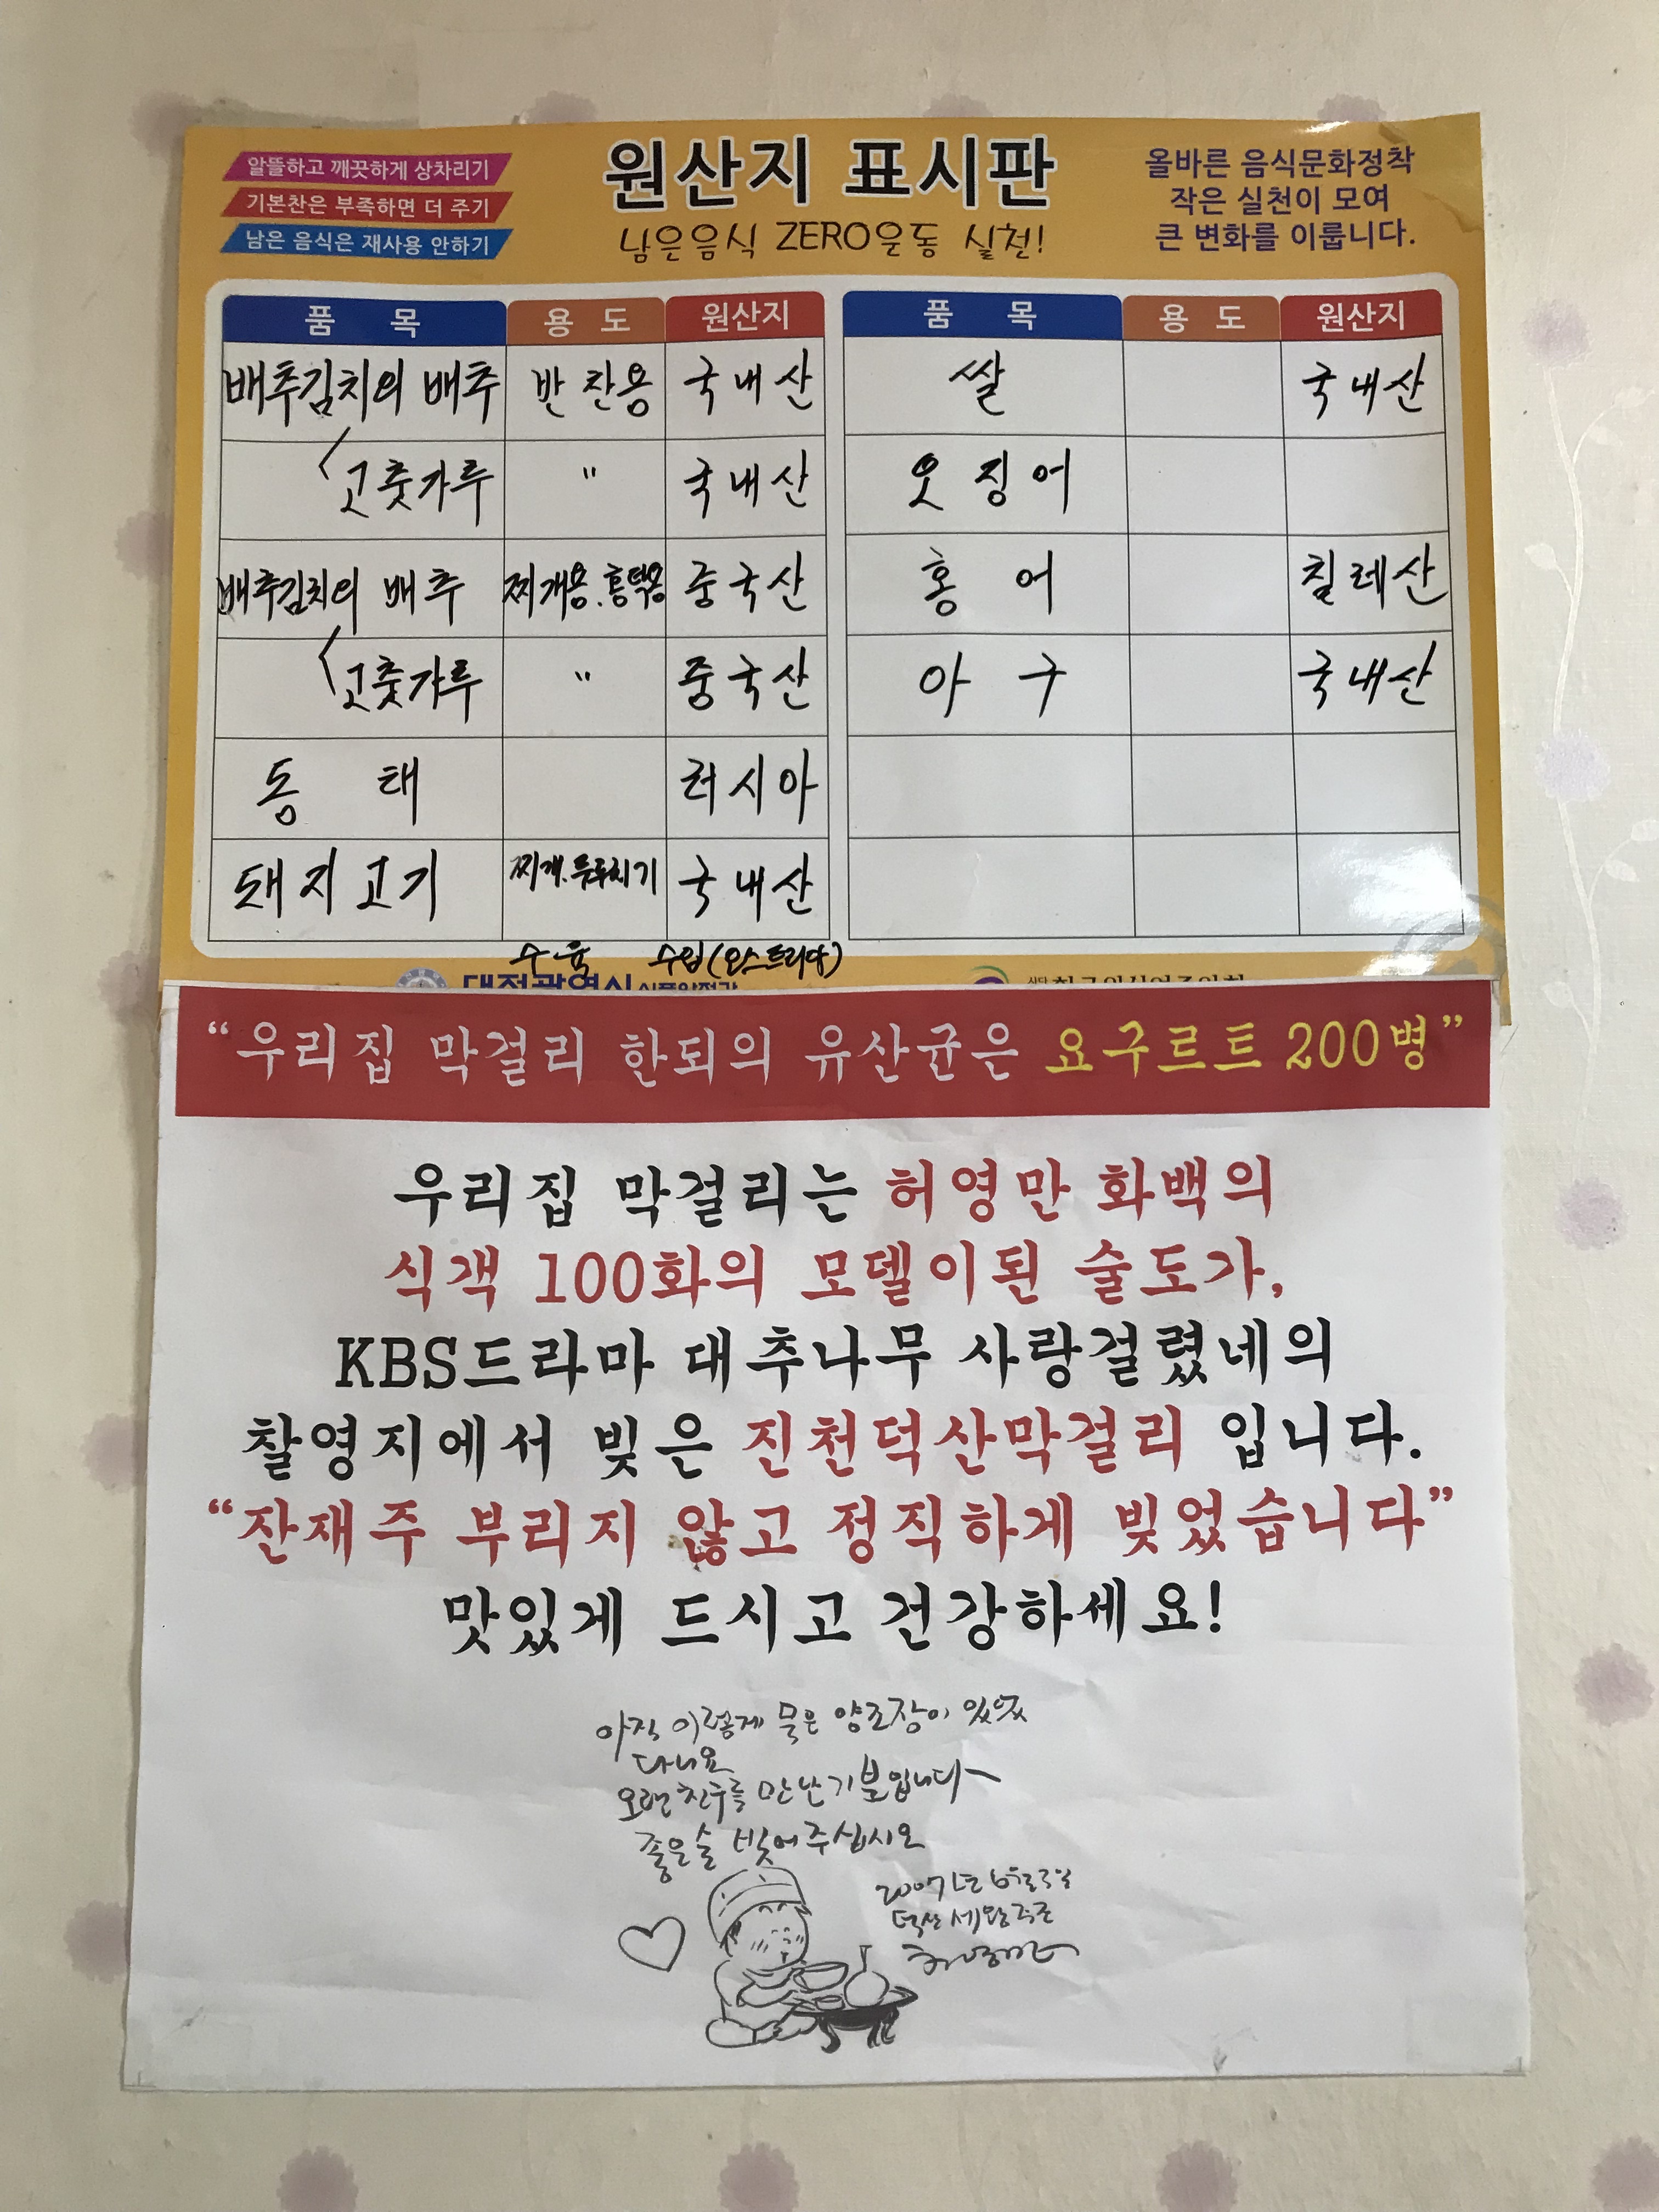 알뜰하고 깨끗하게 상차리기
기본찬은 부족하면 더 주기
남은 음식은 재사용 안하기
원산지 표시판
남은음식 ZERO운동 실천!
올바른 음식문화정착
작은 실천이 모여
큰 변화를 이룹니다.
품 목 용 도 원산지
배추김치의 배추 반찬용 국내산
고춧가루 " 국내산
배추김치의 배추 찌개용.홍탁용 중국산
고춧가루 " 중국산
동 태 러시아
돼지고기 찌개.두루치기 국내산
수육 수입(오스트리아)
품 목 용 도 원산지
쌀 국내산
오징어
홍 어 칠레산
아 구 국내산
대전광역시
“우리집 막걸리 한되의 유산균은 요구르트 200병”
우리집 막걸리는 허영만 화백의
식객 100화의 모델이된 술도가,
KBS드라마 대추나무 사랑걸렸네의
촬영지에서 빚은 진천덕산막걸리 입니다.
“잔재주 부리지 않고 정직하게 빚었습니다”
맛있게 드시고 건강하세요!
아직 이렇게 묵은 양조장이 있었
다니요
오랜 친구를 만난 기분입니다~
좋은 술 빚어 주십시오
2007년 6월 3일
덕산 세왕주조
허영만